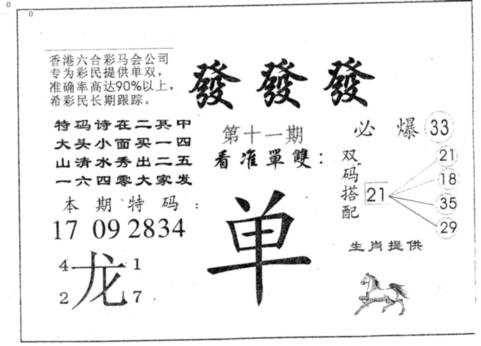 0
0
香港六合彩马会公司
专为彩民提供单双,
准确率高达90%以上,
希彩民长期跟踪。
發發發
特码诗在二其中
大头小面买一四
山清水秀出二五
一六四零大家发
第十一期
看准單雙:
必爆 33
双码搭配
21
21
18
35
29
本期特码:
17 09 28 34
龙
4
1
2
7
单
生肖提供